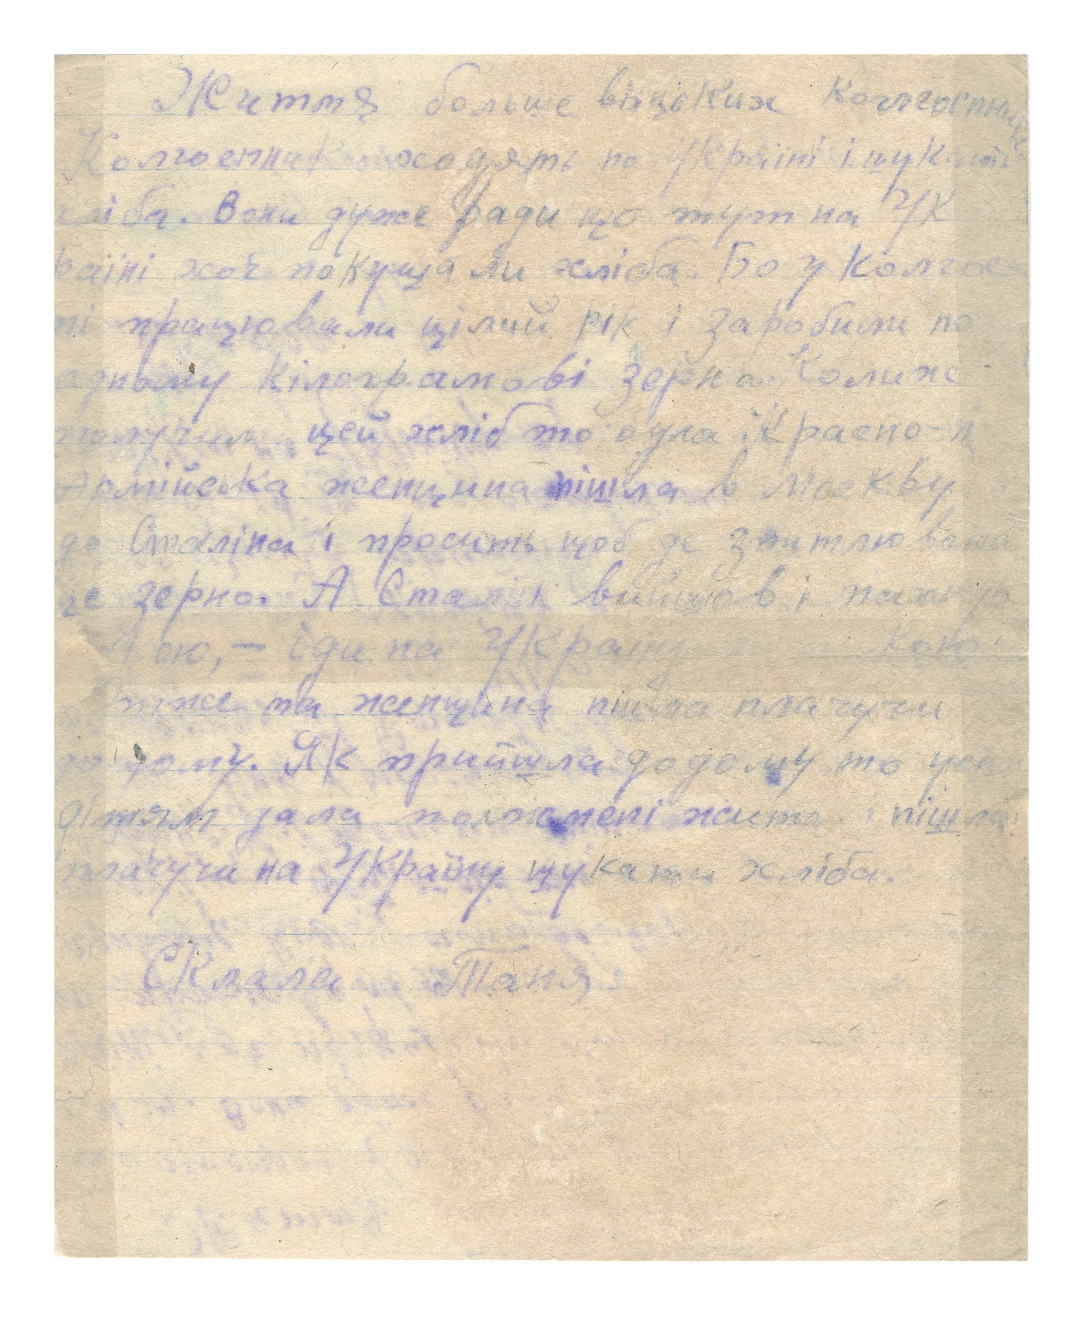 Життя больше віцьких колгоспників
Колгоспники ходять по Україні і шукають
хліба. Вони дуже ради що тут на Ук
раїні хоч покущали хліба. Бо у колгос
пі працювали цілий рік і заробили по
адному кілограмові зерна. Колиж
получили цей хліб то одна Красно-
Армійська женщина пішла в Москву
до Сталіна і просить щоб де
це зерно. А Сталін вийшов і
ою, — іди на Україну
отже та женщина пішла плачучи
додому. Як прийшла додому то усім
дітям дала пожмені жита і пішла
плачучи на Україну шукати хліба.
Склала Таня